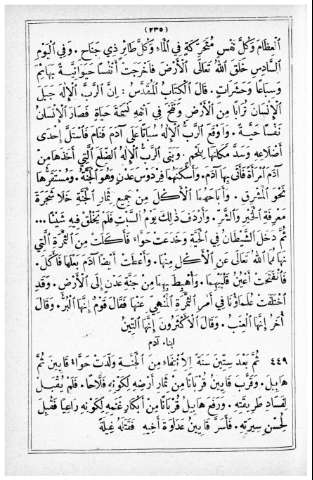 (٢٣٥)
العظام وكلّ نفس متحركة في الماء وكلّ طائر ذي جناح . وفي اليوم
السادس خلق الله تعالى الأرض فاخرجت أنفسًا حيوانيّة بهائم
وسباعًا وحشرات . قال الكتاب المقدّس : انّ الربّ الإله جبل
الإنسان ترابًا من الأرض ونفخ في انفه نسمة حياة فصار الإنسان
نفسًا حيّة . واوقع الربّ الإله سباتًا على آدم فنام فاستلّ إحدى
أضلاعه وسدّ مكانها بلحم . وبنى الربّ الإله الضلع التي أخذها من
آدم امرأة فأتى بها آدم . وأسكنهما فردوس عدن وهو الجنّة . ومستقرّها
نحو المشرق . وأباحهما الأكل من جميع ثمار الجنّة خلا شجرة
معرفة الخير والشرّ . وأردف ذلك يوم السبت فلم يخلق فيه شيئًا ...
ثمّ دخل الشيطان في الحيّة وخدعت حوّاء فأكلت من الثمرة التي
نهاها الله تعالى عن الأكل منها . وأطعمت أيضًا آدم بعلها فأكل .
فانفتحت أعين قلبيهما . وأهبط بهما من جنّة عدن إلى الأرض . وقد
اختلفت علماؤنا في أمر الثمرة المنهي عنها فقال قوم إنّها البرّ . وقال
أُخر إنّها العنب . وقال الأكثرون إنّها التين
ابناء آدم
٤٤٩ ثمّ بعد ستين سنة الانتفاء من الجنّة ولدت حوّاء قايين ثمّ
هابيل . وقرّب قايين قربانًا من ثمار أرضه لكونه فلّاحًا . فلم يُقبل
لفساد طريقته . ورفع هابيل قربانًا من أبكار غنمه لكونه راعيًا فقُبل
لحسن سيرته . فأسرّ قايين عداوة أخيه فقتله غيلة